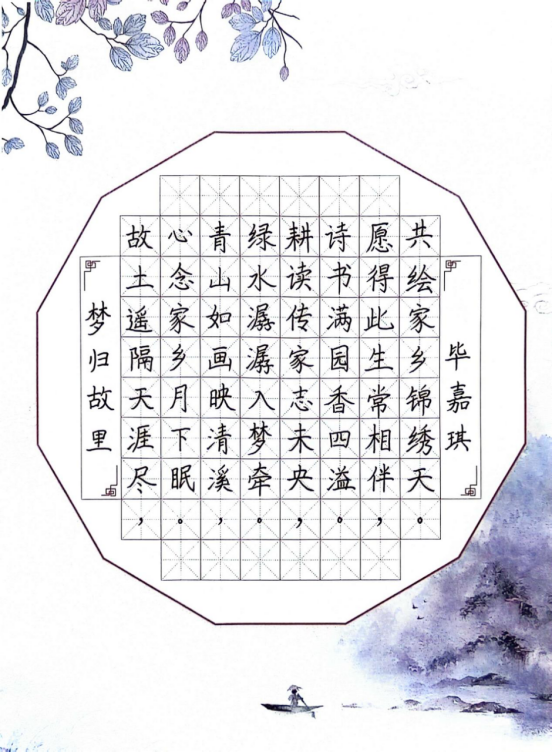 梦归故里
故土遥隔天涯尽，
心念家乡月下眠。
青山如画映清溪，
绿水潺潺入梦牵。
耕读传家志未央，
诗书满园香四溢。
愿得此生常相伴，
共绘家乡锦绣天。
毕嘉琪